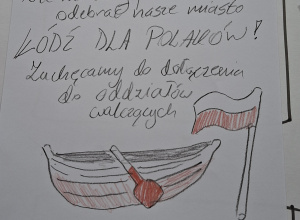 odebrał nasze miasto
ŁÓDŹ DLA POLAKÓW!
Zachęcamy do dołączenia
do oddziałów
walczących